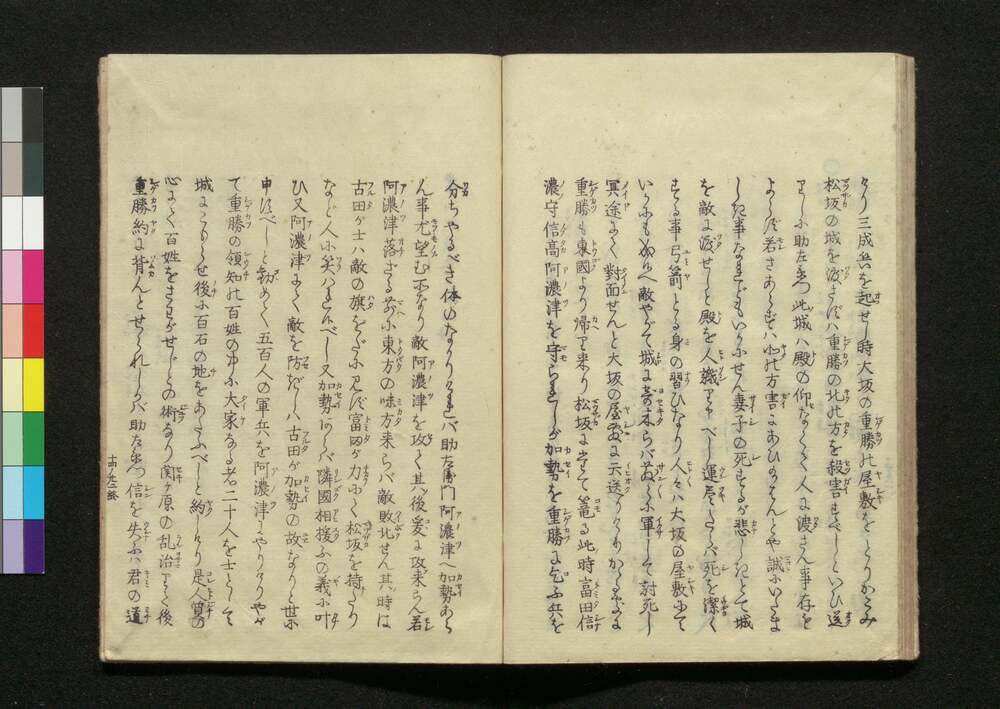 けり三成兵を起せし時大坂の重勝の屋敷をとりかこみ
松坂の城を渡さずバ重勝の北の方を殺害すべしといひ送
りしに助左衛門此城ハ殿の仰なくて人に渡さん事存も
よらず若さあらずバ北の方害にあひ給はんとや誠にいたま
しき事なれどもいかにせん妻子の死するが悲しきとて城
を敵に渡せしと殿を人嘲りやべし運尽きたらバ死を潔く
する事弓箭とる身の習ひなり人々ハ大坂の屋敷にて
いかにも給へ敵やがて城に寄来らバ軍して討死し
冥途にて對面せんと大坂の屋敷に云送りけりかゝる
重勝も東國より帰り来り松坂に篭る此時富田信
濃守信高阿濃津を守られしが加勢を重勝に乞ふ兵を
分ちやるべき体のなかりけれバ助左衛門阿濃津へ加勢あら
ん事尤望む所なり敵阿濃津を攻て其後爰に攻来らん若
阿濃津落ざる前に東方の味方来らバ敵敗北せん其時は
古田が士ハ敵の旗をだに見ず富田が力にて松坂を持たり
など人に笑ハれ候べし又加勢なくバ隣國相援ふの義に叶
ひ又阿濃津にて敵を防だしハ古田が加勢の故なりと世に
申すべしと勧めて五百人の軍兵を阿濃津にやりけりやが
て重勝の領知の百姓の中に大家なる者二十人を士として
城にこもらせ後に百石の地をあたふべしと約しけり是人質の
心にて百姓をさわがせじとの術なり関ヶ原の乱治りて後
重勝約に背んとせられしかバ助左衛門信を失ふハ君の道